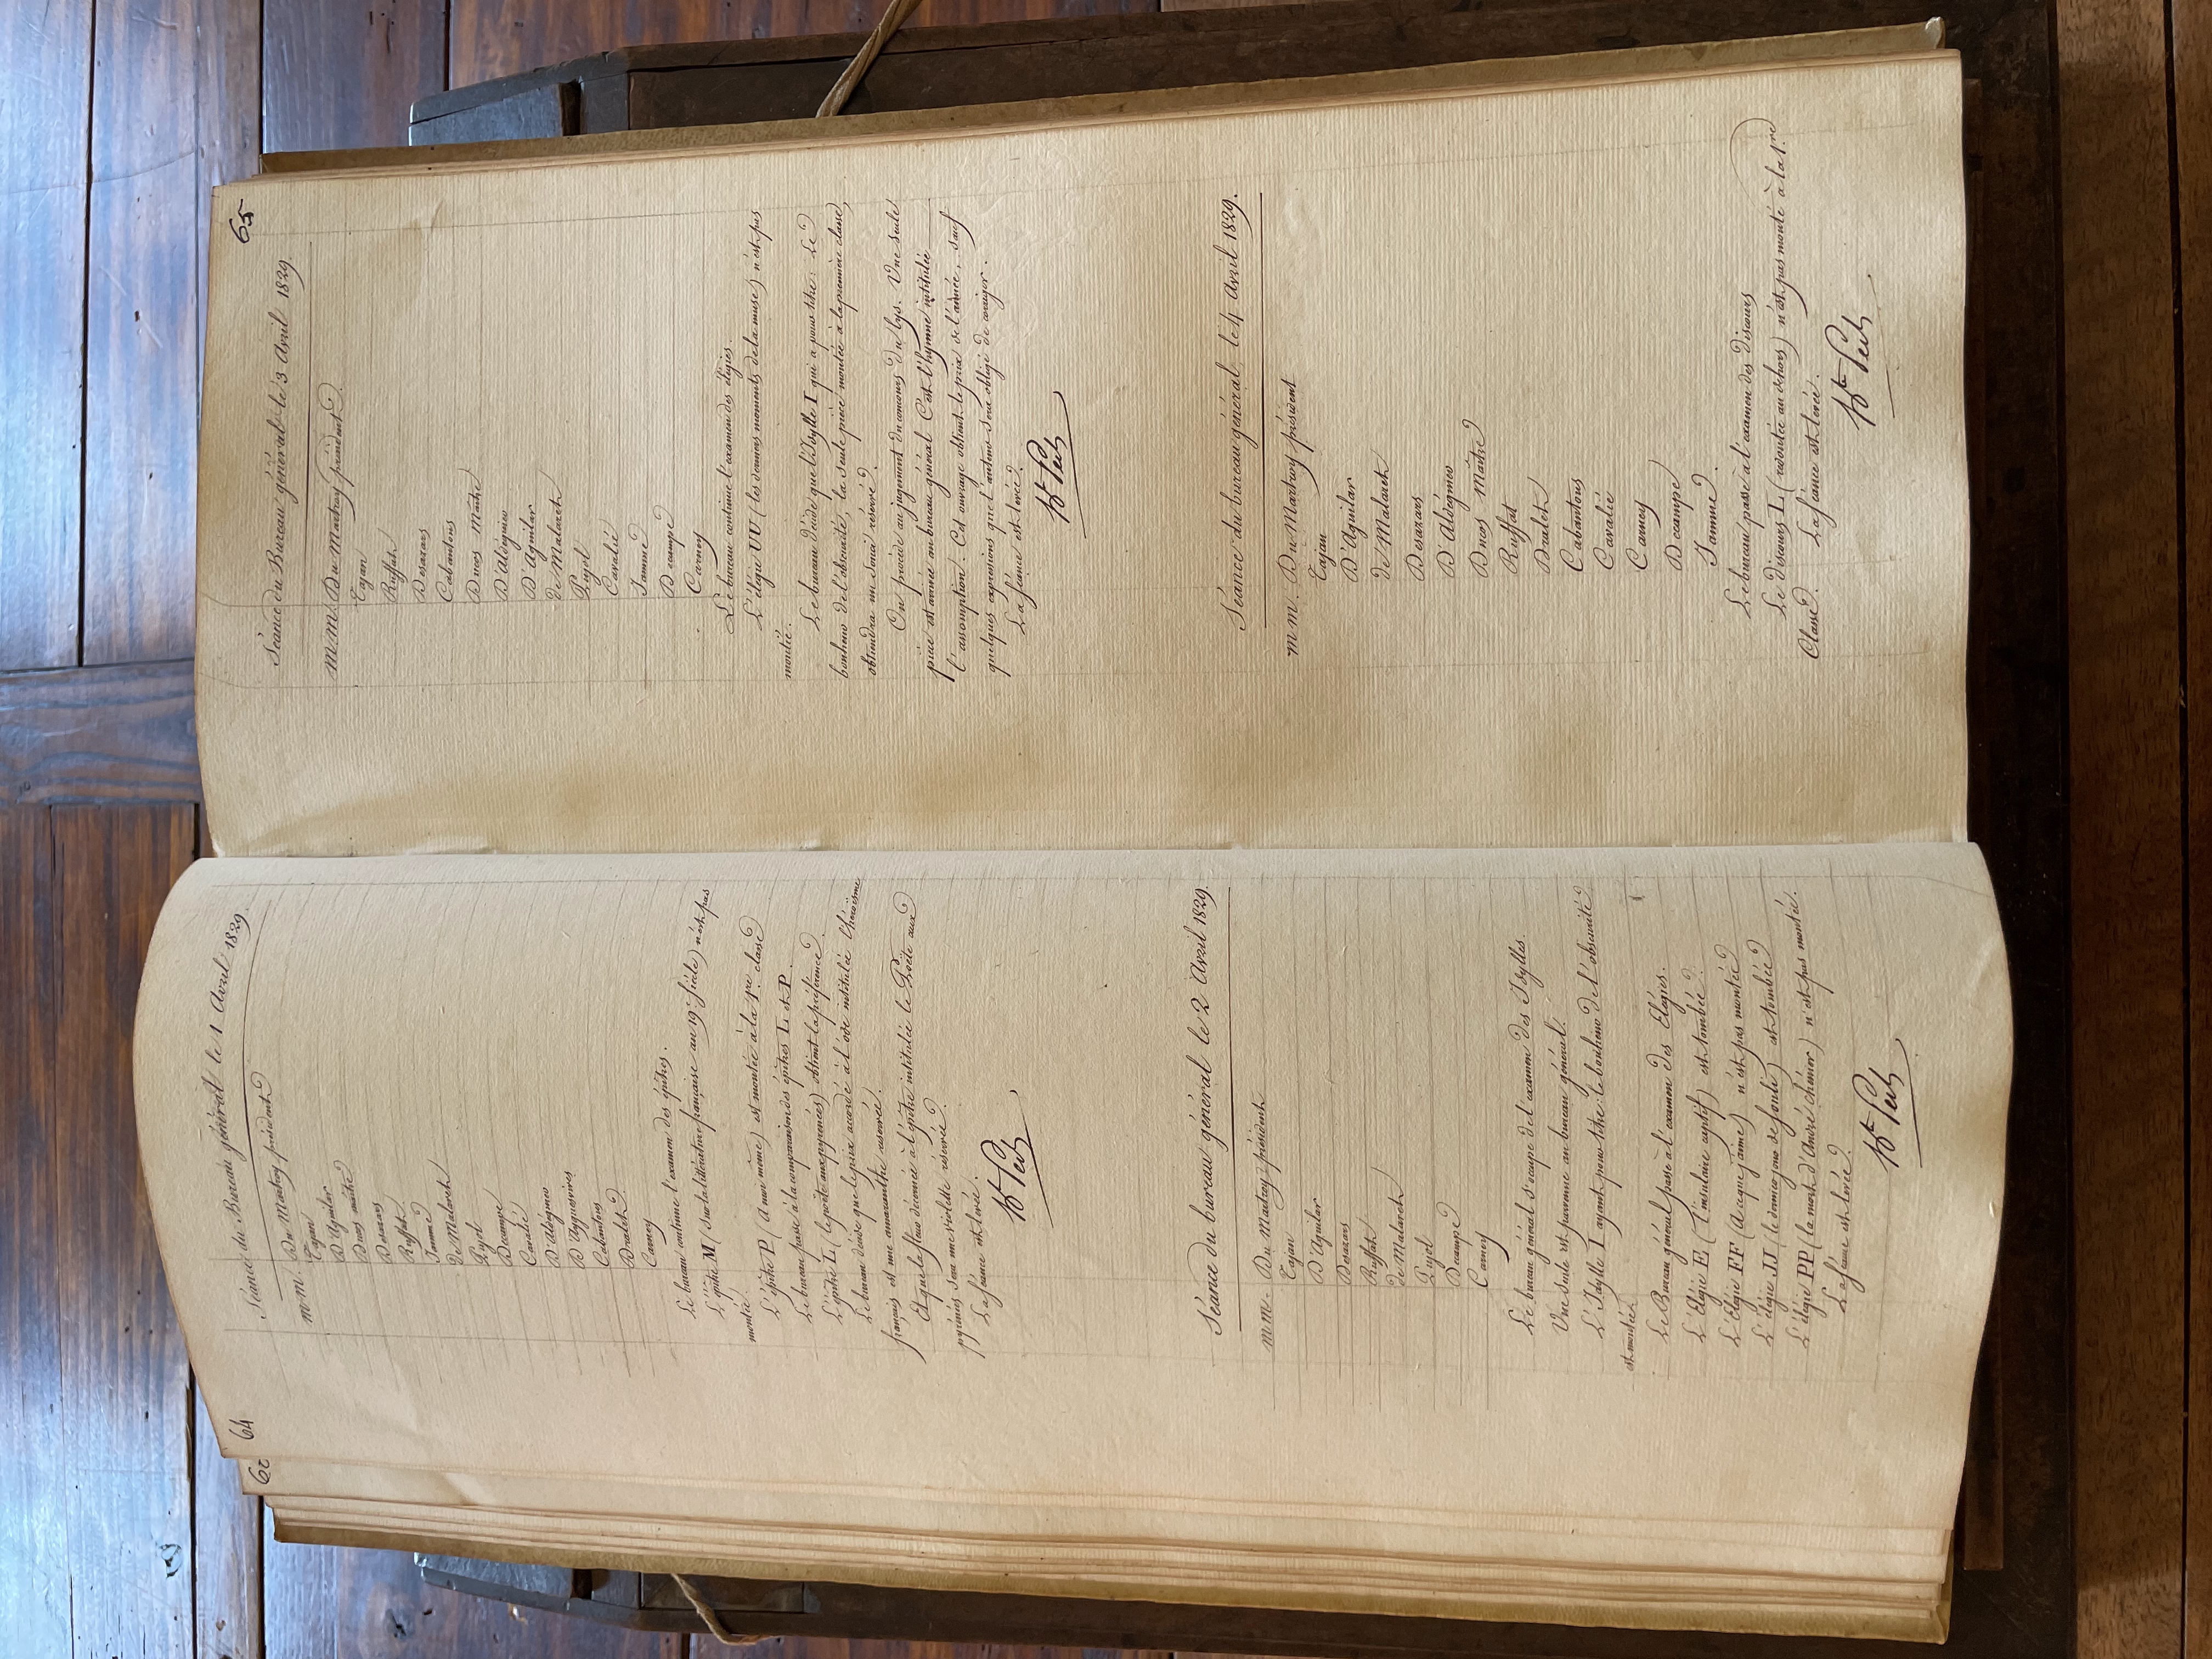 64
Séance du Bureau général le 1 Avril 1829.
m.m. Du Martroy président
Tajan
D'Aguilar
Ducos maître
Desazars
Ruffat
Jamme
de Malaret
Pujol
Decampe
Cavalié
D'Aldéguier
D'Ayguesvives
Cabantous
Dralet
Carney
Le bureau continue l'examen des épîtres.
L'épître M (sur la littérature française au 19e siècle) n'est pas
montée.
L'épître P (à moi même) est montée à la 1re classe
Le bureau passe à la comparaison des épîtres L et P.
L'épître L (le poëte aux pyrénées) obtient la préférence.
Le bureau décide que le prix accordé à l'ode intitulée l'héroïsme
français est une amaranthe reservée.
Et que la fleur décernée à l'épître intitulée le Poëte aux
pyrénées sera une violette réservée.
La séance est levée.
Séance du bureau général le 2 Avril 1829.
m.m. Du Martroy président
Tajan
D'Aguilar
Desazars
Ruffat
de Malaret
Pujol
Decampe
Carney
Le bureau général s'occupe de l'examen des Idylles.
Une seule est parvenue au bureau général.
L'Idylle I ayant pour titre: le bonheur de l'obscurité
est montée.
Le Bureau général passe à l'examen des Elégies.
L'Elégie E (l'insulaire captif) est tombée.
L'Elégie FF (à ce que j'aime) n'est pas montée
L'élégie JJ (le dernier jour de foulé) est tombée
L'élégie PP (la mort d'André chénier) n'est pas montée.
La séance est levée.
65
Séance du Bureau général le 3 Avril 1829
m.m. Du Martroy président.
Tajan
Ruffat
Desazars
Cabantous
Ducos Maître
D'Aldéguier
D'Aguilar
de Malaret
Pujol
Cavalié
Jamme
Decampe
Carney
Le bureau continue l'examen des élégies.
L'élégie UU (les derniers moments de la muse) n'est pas
montée.
Le bureau décide que l'Idylle I qui a pour titre: Le
bonheur de l'obscurité, la seule pièce montée à la première classe,
obtiendra un souci réservé.
On procède au jugement du concours du lys. Une seule
pièce est arrivée au bureau général C'est l'hymne intitulé
l'assomption. Cet ouvrage obtient le prix de l'année, sauf
quelques expressions que l'auteur sera obligé de corriger.
La séance est levée.
Séance du bureau général le 4 Avril 1829.
m.m. Du Martroy président
Tajan
D'Aguilar
de Malaret
Desazars
D'Aldéguier
Ducos Maître
Ruffat
Dralet
Cabantous
Cavalié
Carney
Decampe
Jamme.
Le bureau passe à l'examen des discours
Le discours L (redoutée au dehors) n'est pas monté à la 1re
Classe. La séance est levée.